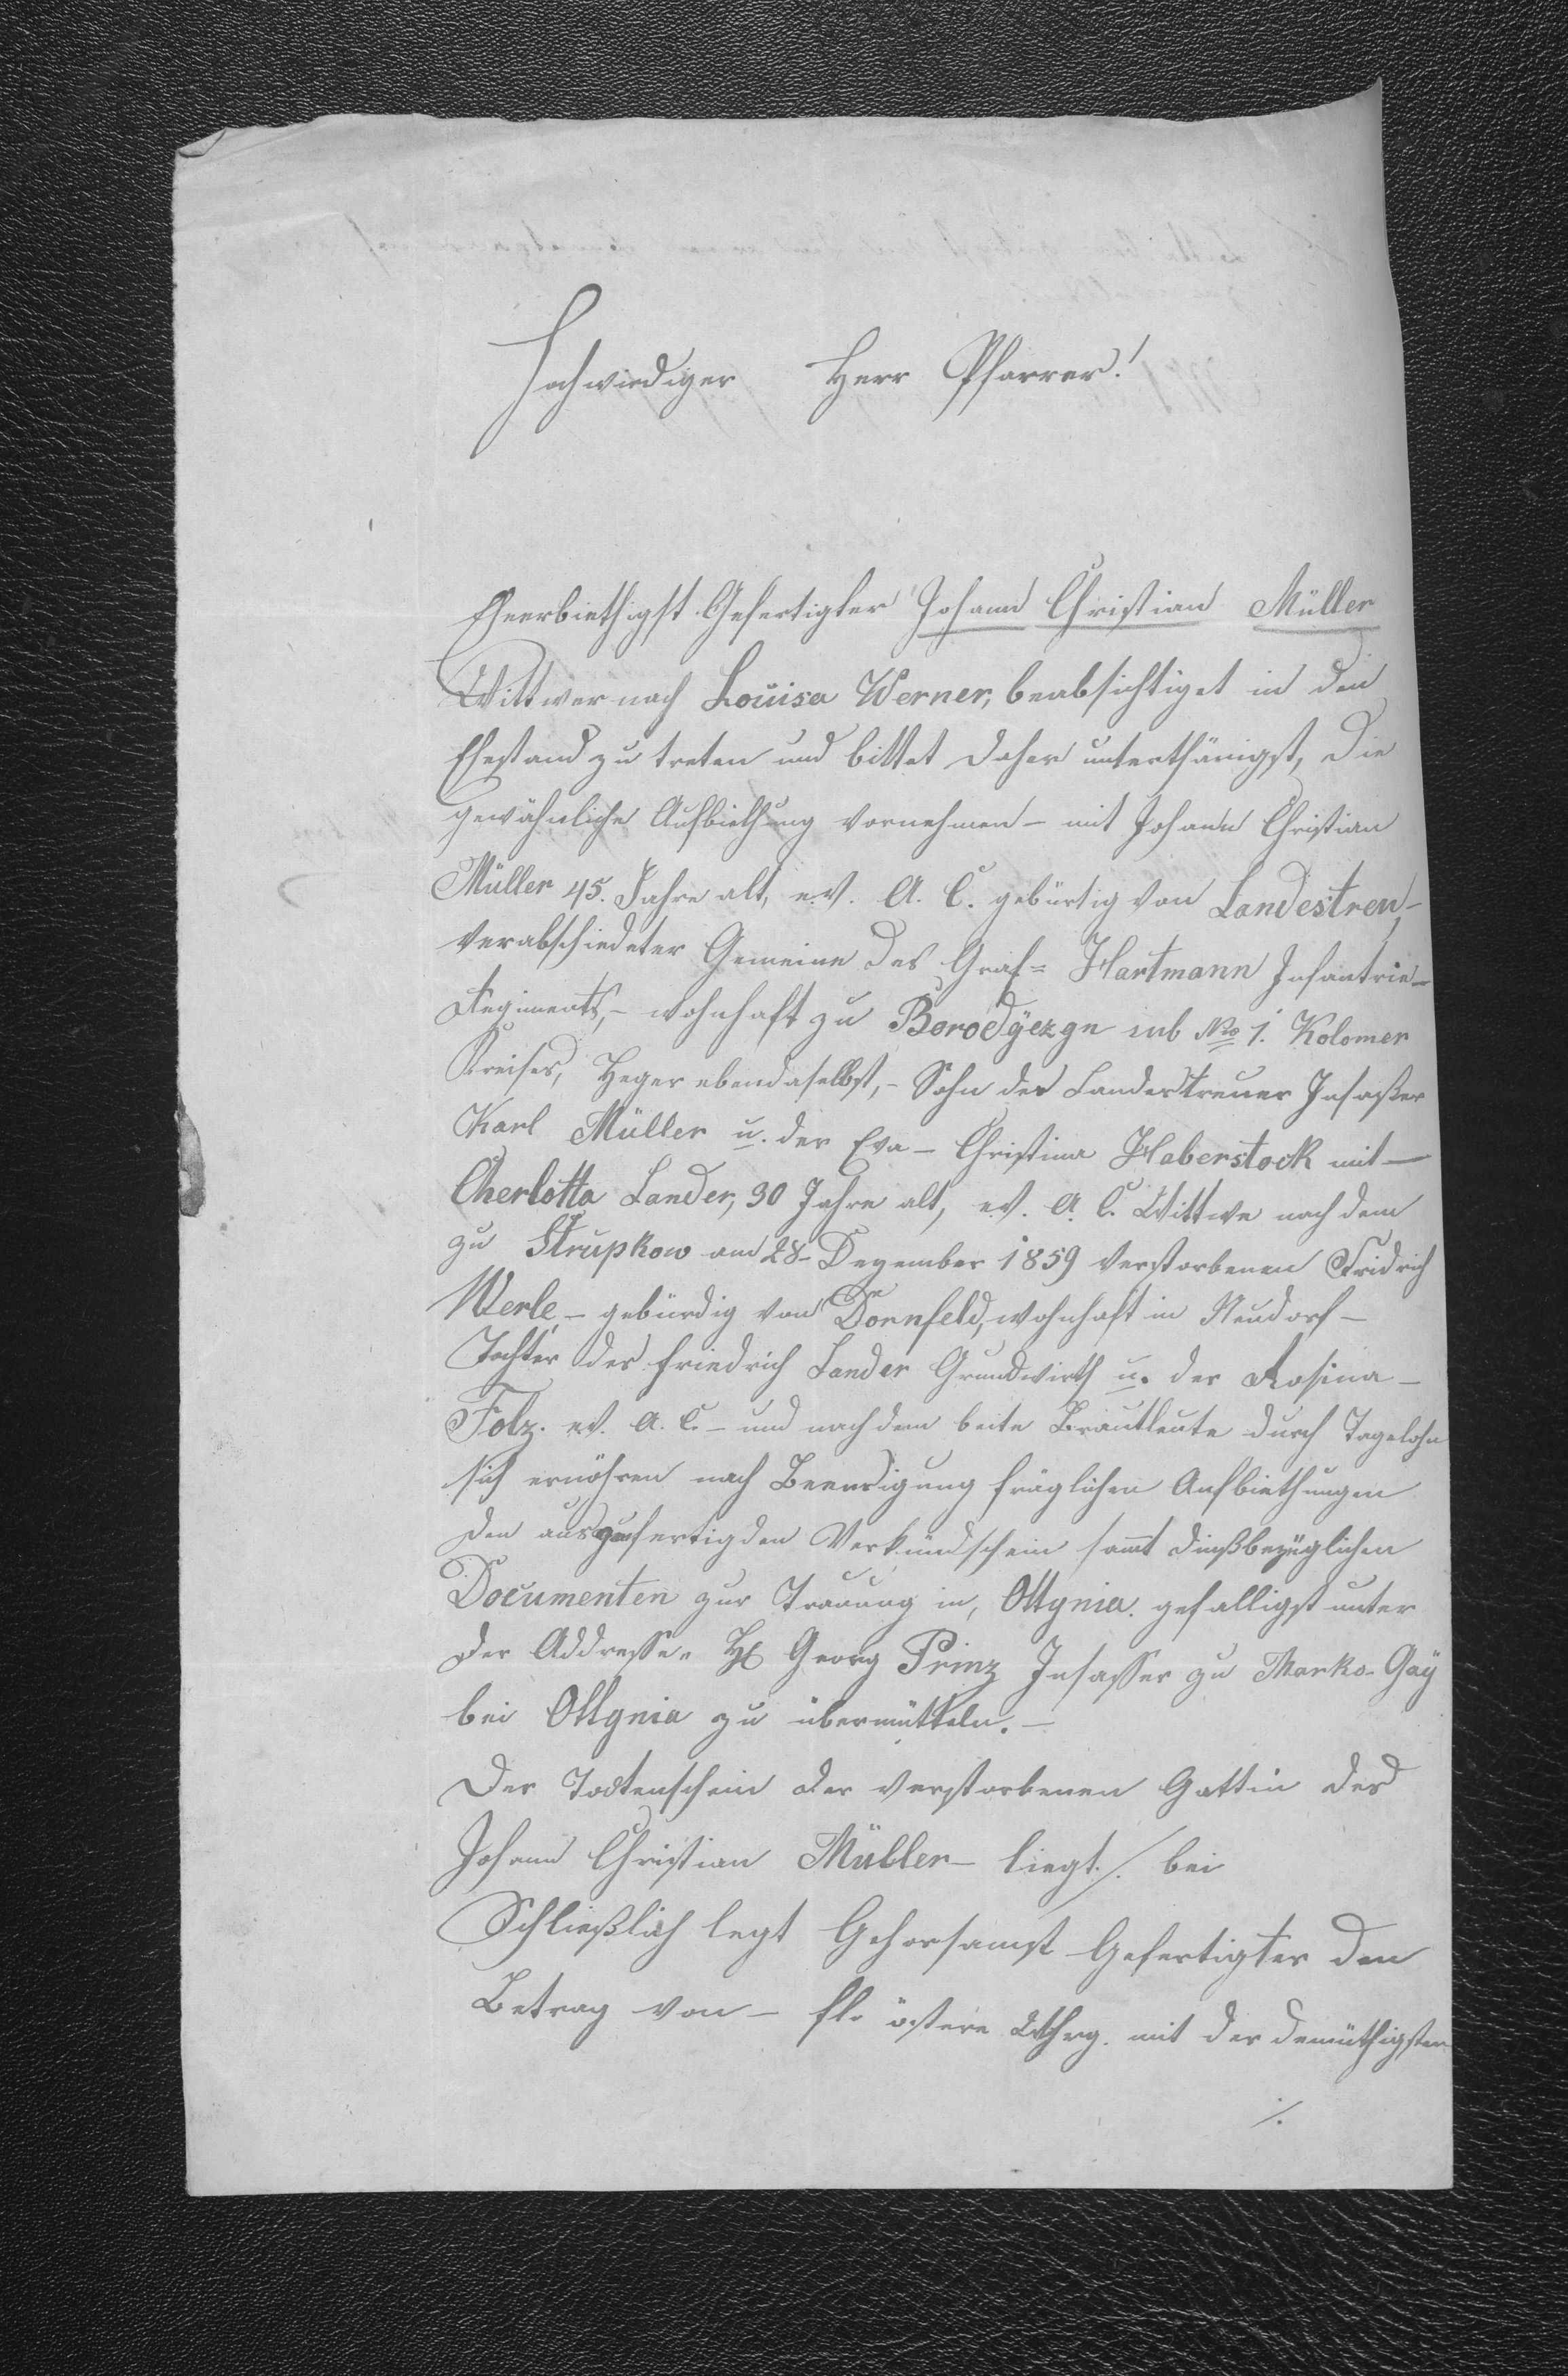 Hochwirdiger Herr Pfarrer!
Eheerbiethigst Gefertigter Johann Christian Müller
Wittwer nach Louisa Werner, beabsichtiget in den
Ehestand zu treten und bittet daher unterthänigst, die
gewähnliche Aufbiethung vornehmen – mit Johann Christian
Müller 45. Jahre alt, ev. A. C. gebürtig von Landestreu,–
verabschiedeter Gemeine des Graf= Hartmann Infantrie–
Regiments,– wohnhaft zu sub No 1. Kolomer
Kreises, Heger ebendaselbst,– Sohn der Landestreuer Insaßer
Karl Müller u. der Eva – Christina Haberstock mit –
Cherlotta Lander, 30 Jahre alt, ev. A. C. Wittwe nach dem
zu Strupkow am 28– Dezember 1859 verstorbenen Fridrich
Werle, – gebürdig von Dornfeld, wohnhaft in Neudorf –
Tochter des Friedrich Lander Grundwirth u. der Rosina –
Folz. ev. A. C. – und nach dem beite Brautleute durch Tagelohn
sich ernöhren nach Beendigung fräglichen Aufbiethungen
den auszufertigden Verkündschein samt dießbezüglichen
Documenten zur Trauung in, Ottynia. gefalligst unter
der Addresse, H Georg Prinz Insasser zu Marko-Gaÿ
bei Ottynia zu übermütteln. –
Der Todtenschein der verstorbenen Gattin des
Johann Christian Müller – liegt ./. bei
Schließlich legt Gehorsamst Gefertigter den
Betrag von – fl. östere Whrg. mit der demüthigsten
./.